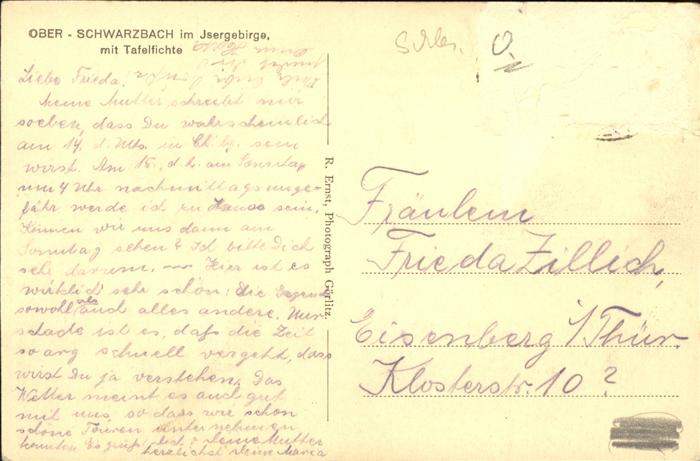 OBER - SCHWARZBACH im Jsergebirge,
mit Tafelfichte
Schles.
Liebe Frieda!
Meine Mutter schreibt mir
soeben, dass Du wahrscheinlich
am 14. d. Mts. in Ebg. sein
wirst. Am 15. d. h. am Sonntag
um 4 Uhr nachmittags unge-
fähr werde ich zu Hause sein.
Können wir uns dann am
Sonntag sehen? Ich bitte Dich
sehr darum. — Hier ist es
wirklich sehr schön: die Gegend
sowohl als auch alles andere. Nur
schade ist es, daß die Zeit
so arg schnell vergeht, das
wirst Du ja verstehen. Das
Wetter meint es auch gut
mit uns, so dass wir schon
schöne Touren unternehmen
konnten. Es grüßt Dich & Deine Mutter
herzlichst Deine Maria
R. Ernst, Photograph Görlitz.
Fräulein
Frieda Zillich,
Eisenberg i/Thür.
Klosterstr. 10?